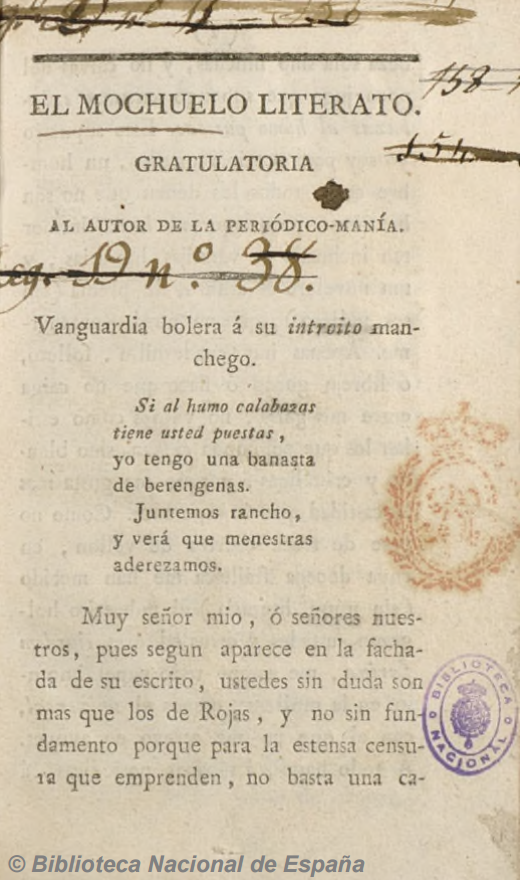 158
EL MOCHUELO LITERATO.
GRATULATORIA
154
AL AUTOR DE LA PERIÓDICO-MANÍA.
Leg. 19 n.º 38.
Vanguardia bolera á su introito man-
chego.
Si al humo calabazas
tiene usted puestas,
yo tengo una banasta
de berengenas.
Juntemos rancho,
y verá que menestras
aderezamos.
Muy señor mio, ó señores nues-
tros, pues segun aparece en la facha-
da de su escrito, ustedes sin duda son
mas que los de Rojas, y no sin fun-
damento porque para la estensa censu-
ra que emprenden, no basta una ca-
BIBLIOTECA NACIONAL
© Biblioteca Nacional de España